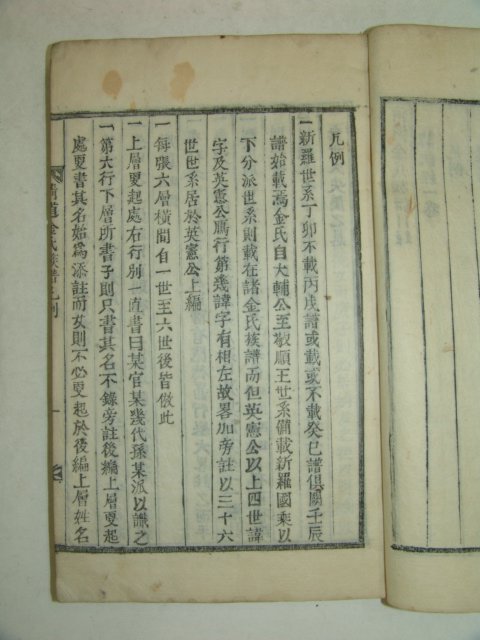 凡例
一新羅世系丁卯不載丙戌譜或載或不載癸巳譜俱闕壬辰
譜始載焉金氏自大輔公至敬順王世系備載新羅國乘以
下分派世系則載在諸金氏族譜而但英憲公以上四世諱
字及英憲公鴈行第幾諱字有相左故畧加旁註以三十六
世世系居於英憲公上編
一每張六層橫間自一世至六世後皆倣此
一上層更起處右行別一直書曰某官某幾代孫某派以識之
一第六行下層所書子則只書其名不錄旁註後編上層更起
處更書其名始爲添註而女則不必更起於後編上層姓名
淸道金氏族譜凡例